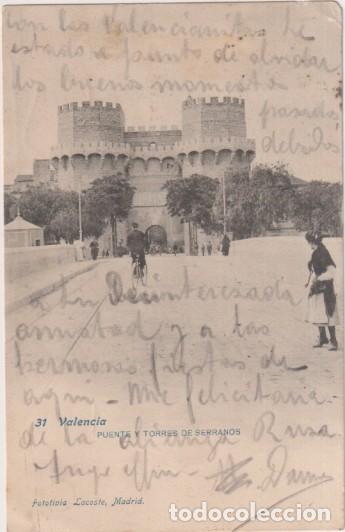 con las Valencianitas he
estado a punto de olvidar
los buenos momentos
pasados
debidos
a tu Desinteresada
amistad y a las
hermosas fiestas de
aqui - Me felicitaria
31 Valencia
PUENTE Y TORRES DE SERRANOS
de la Rusa
fototipia Lacoste, Madrid.
todocoleccion.net